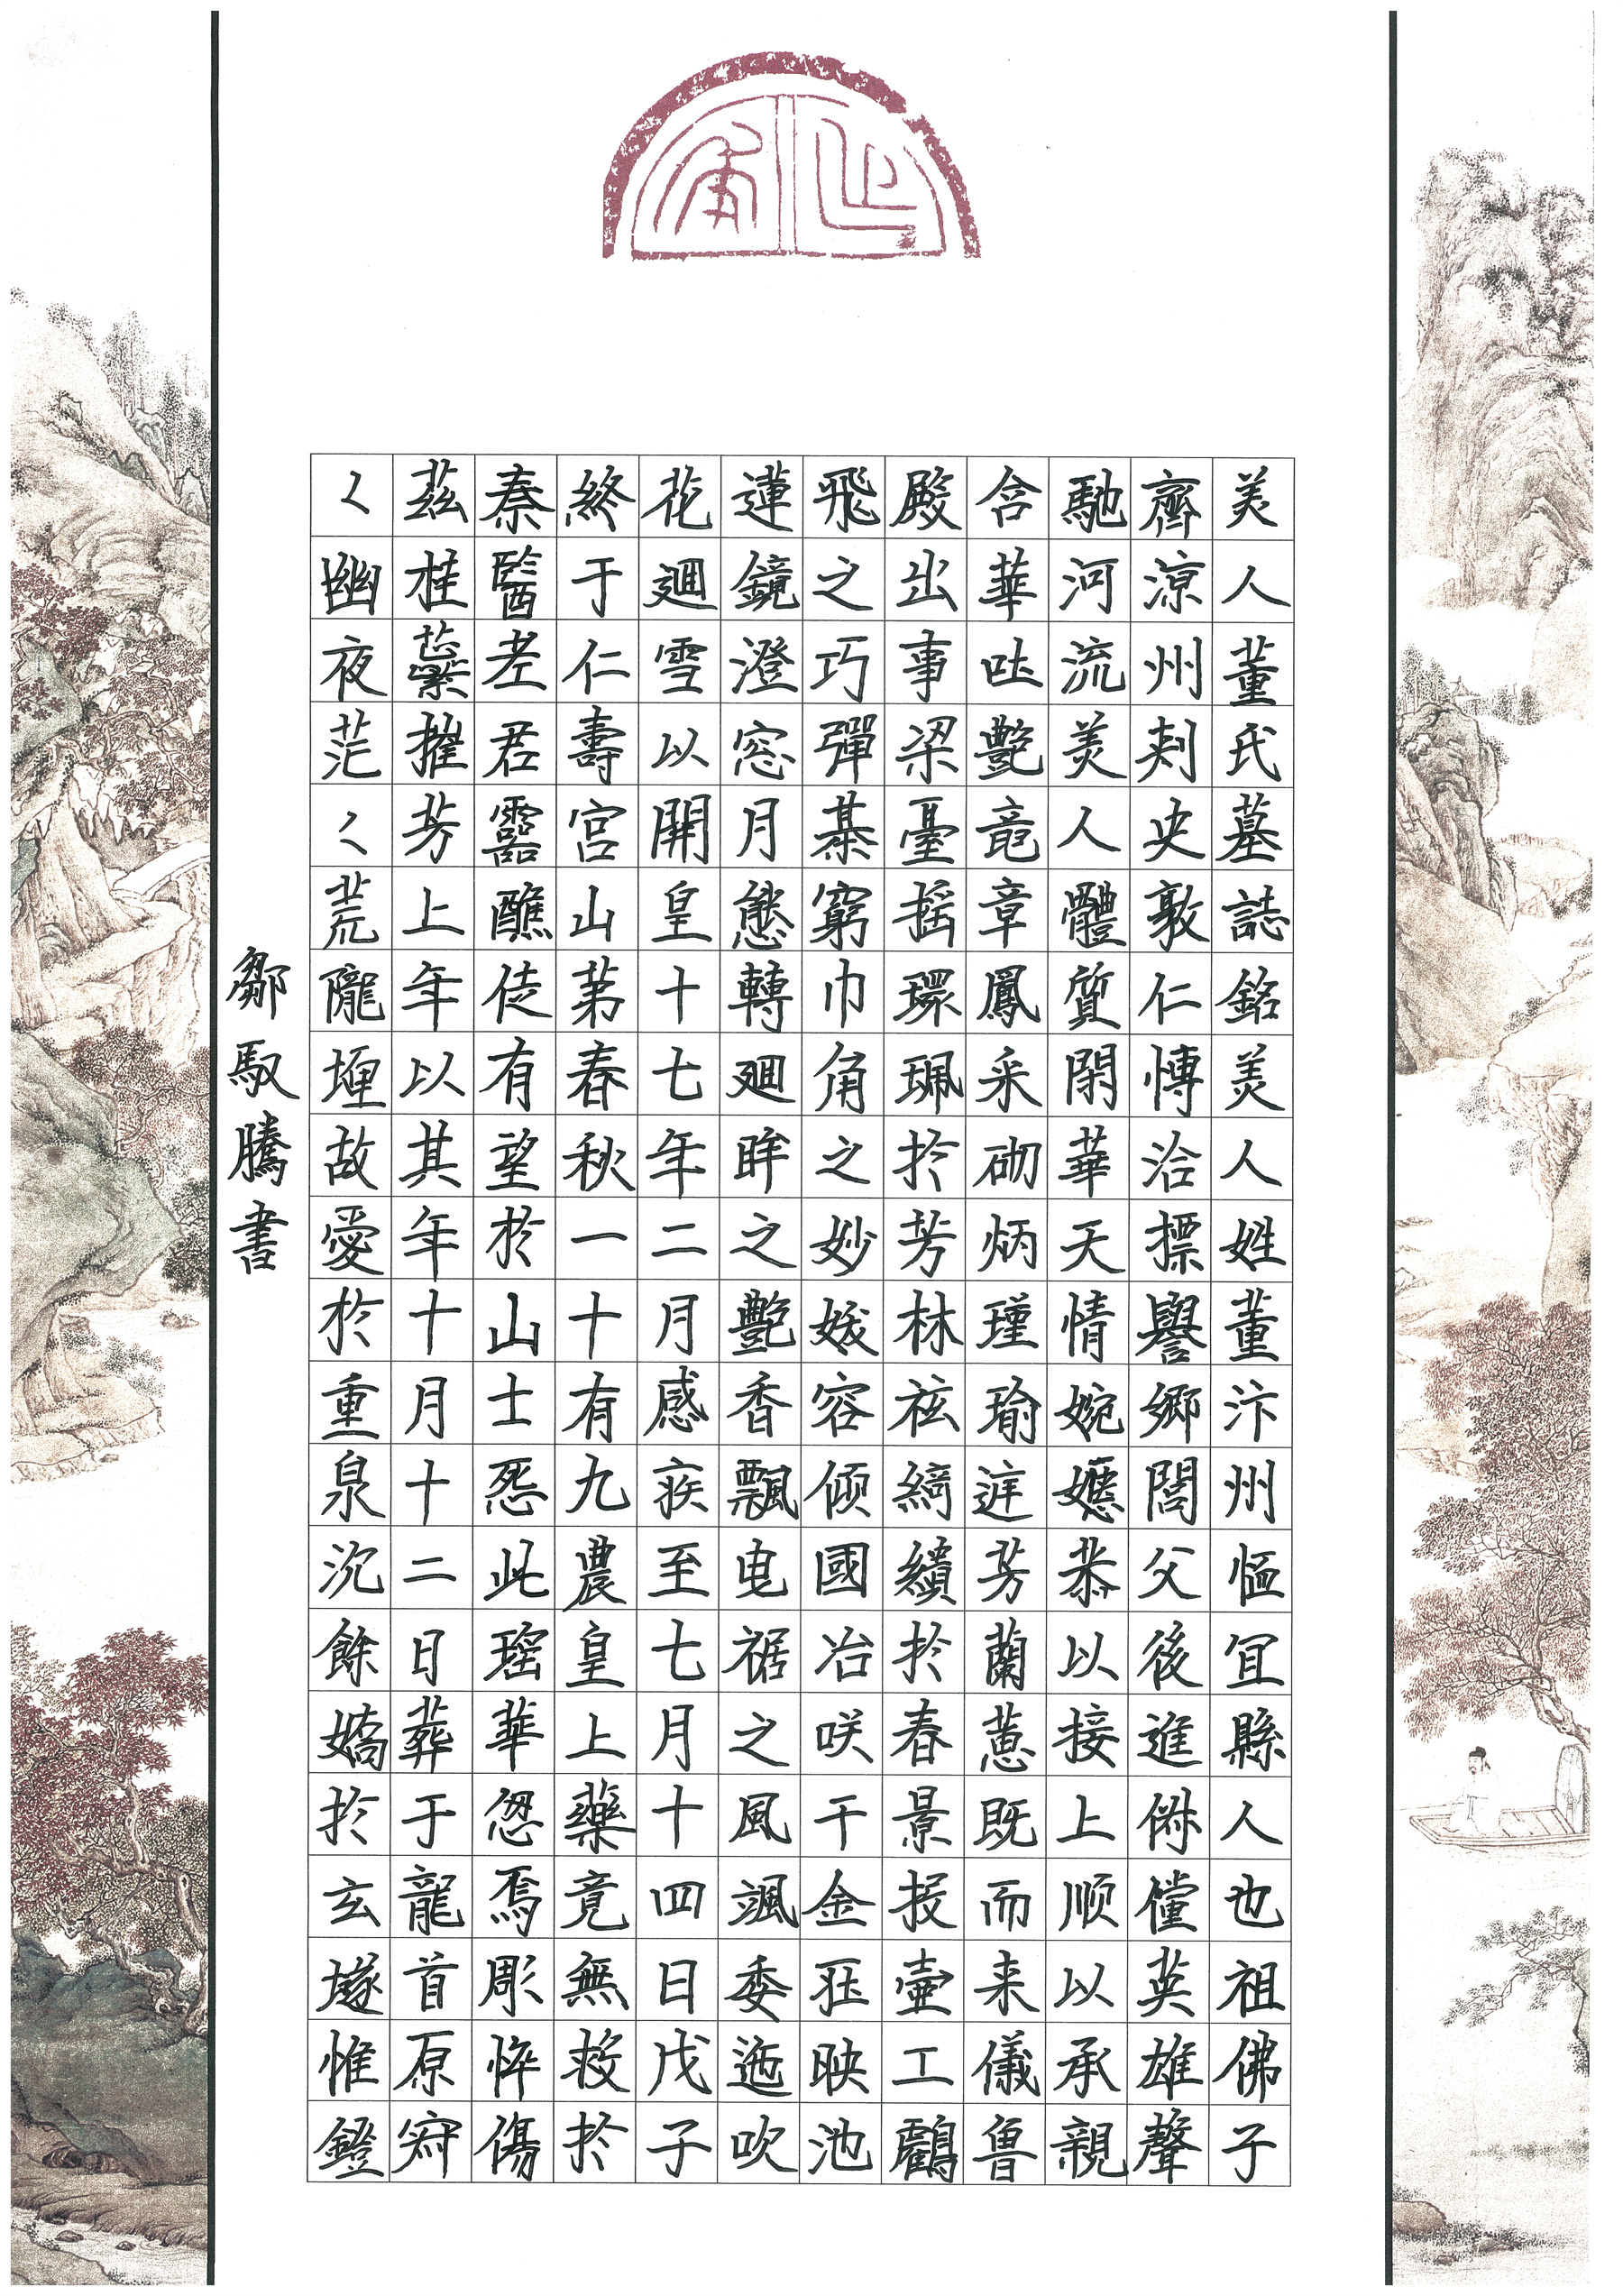 美人董氏墓誌銘美人姓董汴州恤冝縣人也祖佛子
齊涼州刾史敦仁博洽摽譽郷閭父後進俶儻英雄聲
馳河流美人體質閑華天情婉嫕恭以接上順以承親
含華吐艷竟章鳳采砌炳瑾瑜遳芳蘭蕙既而来儀魯
殿出事梁臺摇環珮扵芳林袨綺繢扵春景投壷工鸖
飛之巧彈棊窮巾角之妙媺容傾國冶咲千金荘映池
蓮鏡澄窓月態轉廻眸之艷香飄曳裾之風颯委迤吹
花廻雪以開皇十七年二月感疾至七月十四日戊子
終于仁壽宫山苐春秋一十有九農皇上藥竟無救扵
秦醫老君靈醮徒有望於山士怨此瑶華忽焉彫悴傷
茲桂蘂摧芳上年以其年十月十二日葬于龍首原寂
く幽夜茫く荒隴埋故愛於重泉沉餘嬌扵玄墜惟鐙
鄒馭騰書